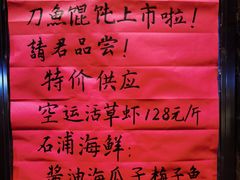 刀魚馄饨上市啦！
請君品尝！
特价供应
空运活草虾128元/斤
石浦海鲜：
酱油海瓜子 梅子魚